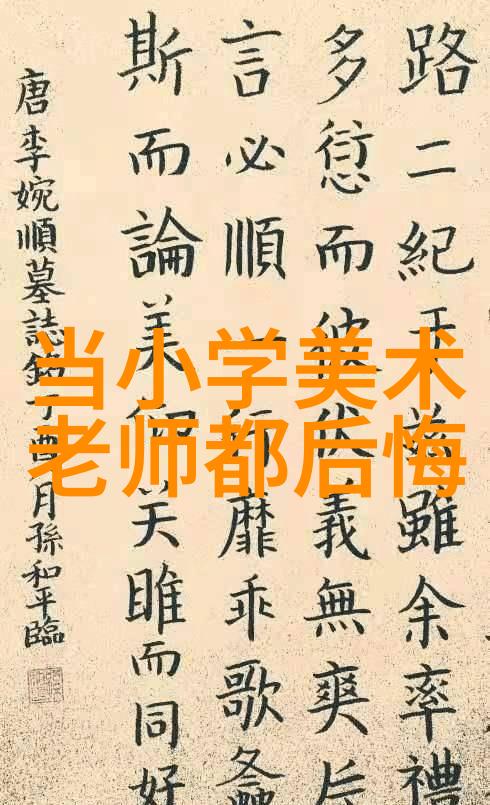 当小学美术
老师都后悔
路二紀于茲雖余率禮
多愆而彼伏義無爽片
言必順一靡乖歌
斯而論美关雎而同好
唐李婉順墓誌銘丁酉月孫和平臨